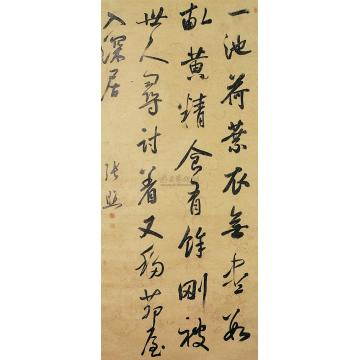 一池荷葉衣無盡數
畝黃精食有餘剛被
世人尋討着又移茆屋
入深居
張照